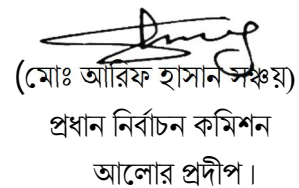 (মোঃ আরিফ হাসান সঞ্চয়)
প্রধান নির্বাচন কমিশন
আলোর প্রদীপ।